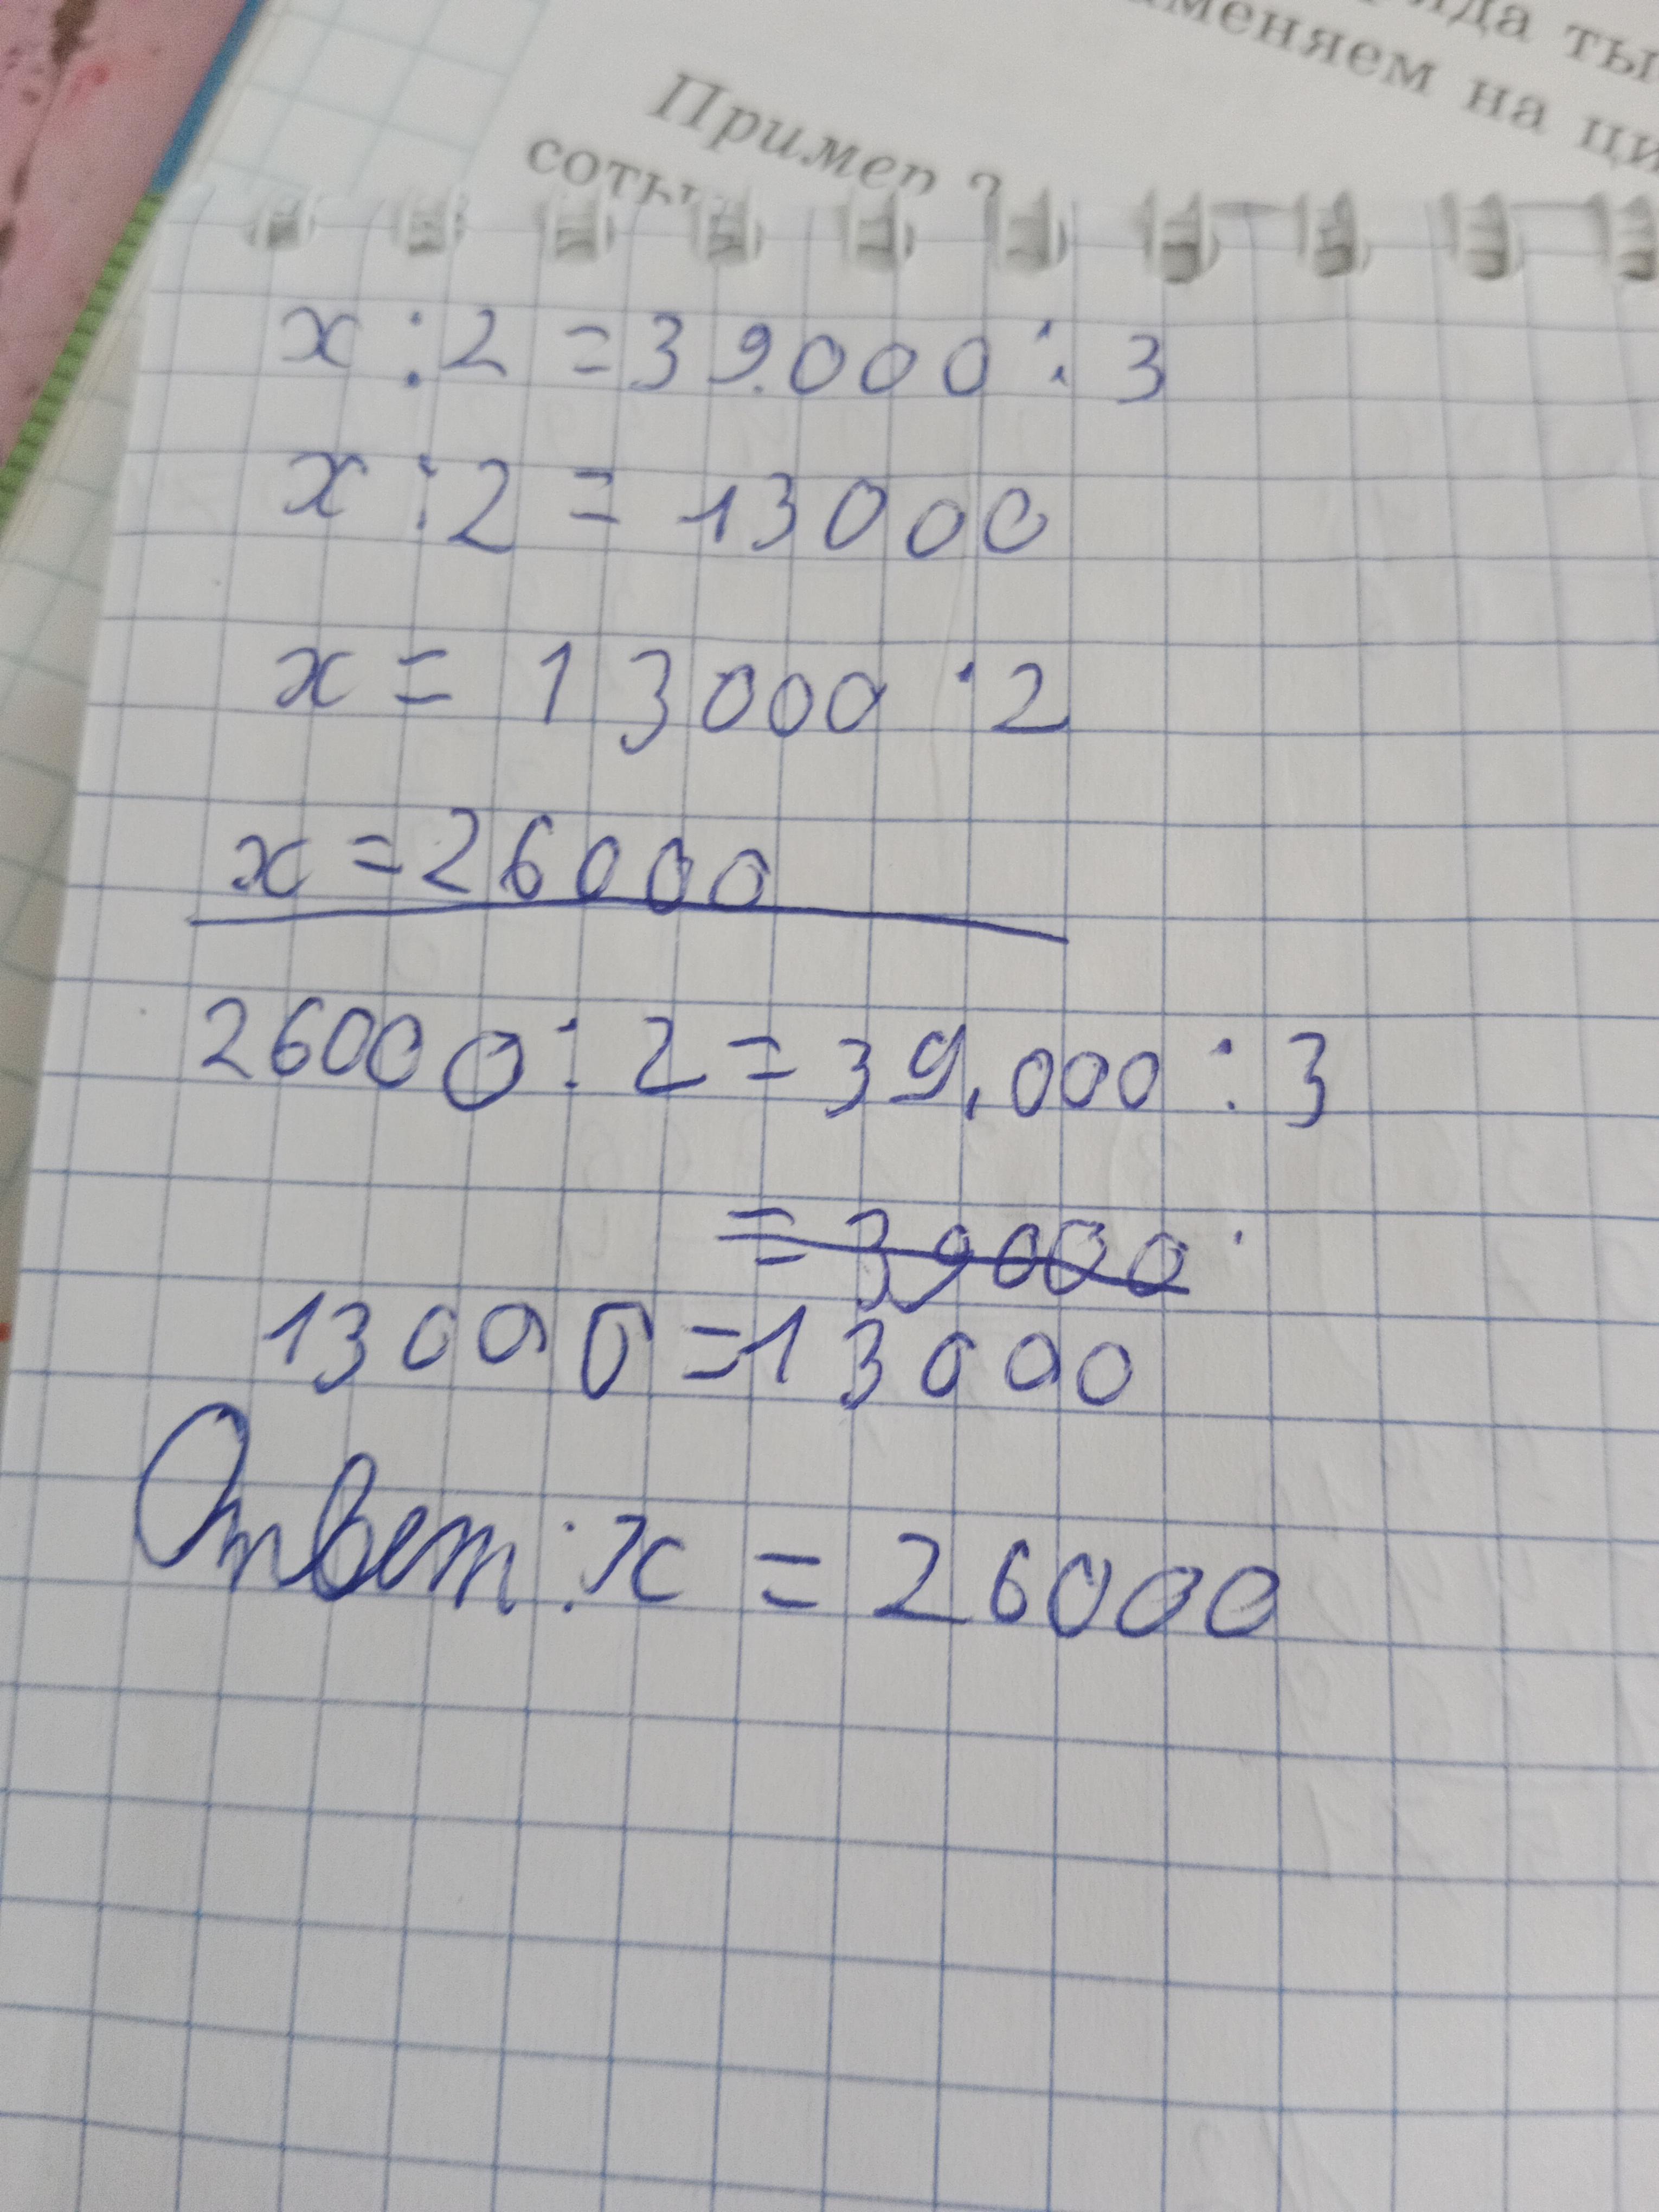 рида ты
меняем на ци
Пример 2
соты
x : 2 = 39.000 : 3
x : 2 = 13000
x = 13000 · 2
x = 26000
26000 : 2 = 39.000 : 3
= 39000 ·
13000 = 13000
Ответ : x = 26000